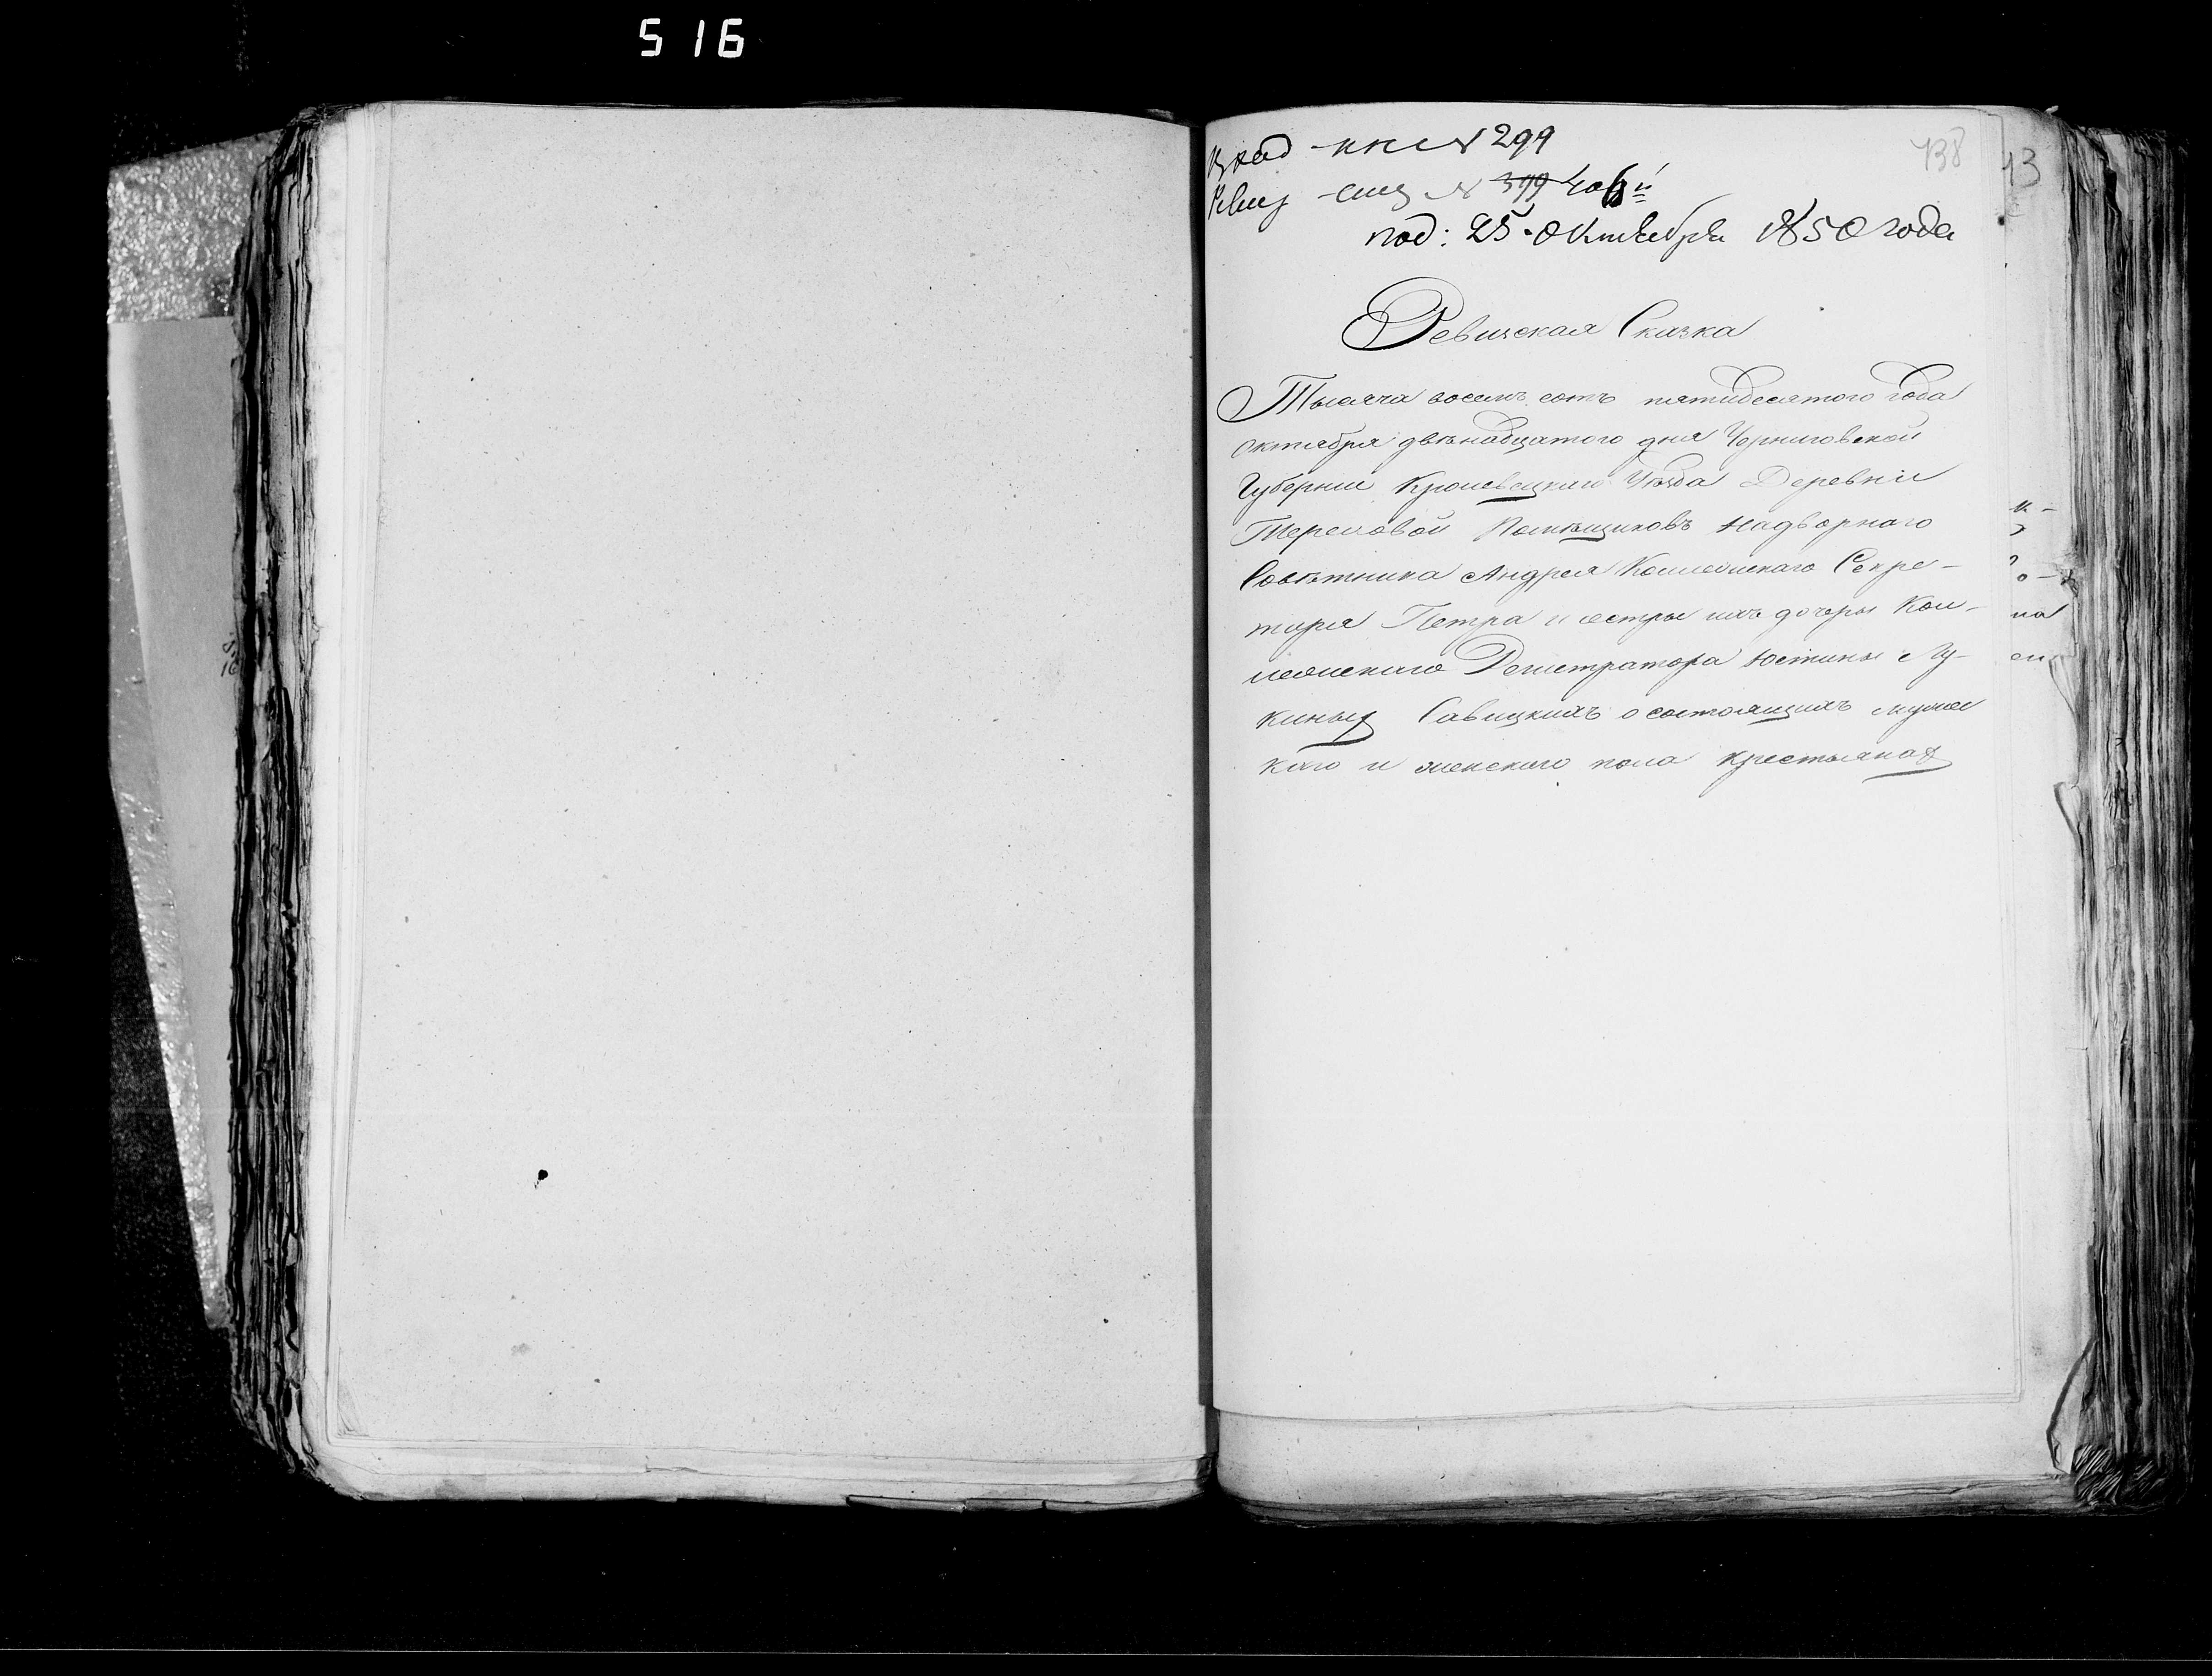 516
438 43
вход - кн № 299
Ревиз - спис № 399 406й
под: 25 Октября 1850 года
Ревизская Сказка
Тысяча восемь сотъ пятидесятого года
октября двѣнадцатого дня Черниговской
Губерніи Кролевецкаго Уѣзда Деревни
Терешовой Помѣщиковъ Надворнаго
Совѣтника Андрея Коллежскаго Секре-
таря Петра и сестры ихъ дочеры Кол-
лежскаго Регистратора Юстины Лу-
киных Савицкихъ о состоящихъ мужес
каго и женскаго пола крестьянах